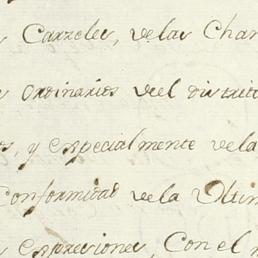 s Carzeles, de las Chan
s ordinarios del distrito
os, y especialmente de la
Conformidad de la Ultim
s expreciones, Con el